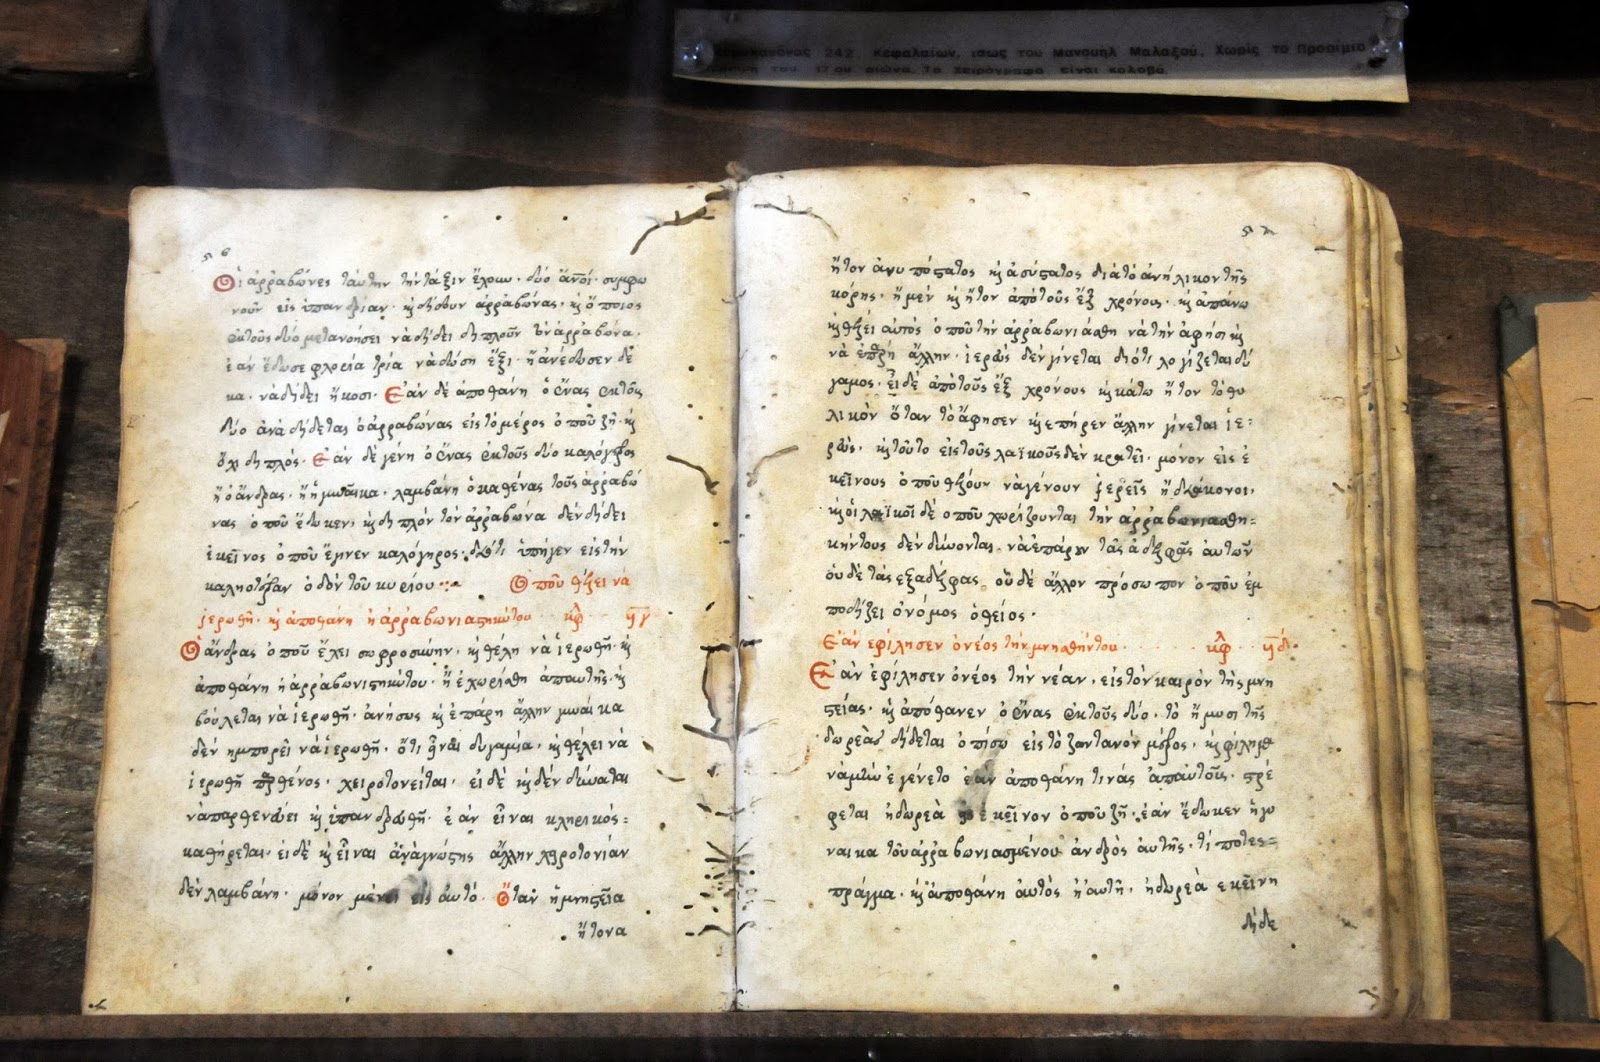 242 Κεφαλαίων, ίσως του Μανουήλ Μαλαξού. Χωρίς το Προοίμιο
του 17ου αιώνα. Το χειρόγραφο είναι κολοβό.
Οἱ ἀρραβῶνες ταύτην τὴν τάξιν ἔχουν· δύο ἄνοι συμφω
νοῦν εἰς ὑπανδρίαν· κ δίδουν ἀρραβῶνας· κ ὅποιος
ἐκτοὺς δύο μετανοήσει νὰ δίδει διπλοῦν τὸν ἀρραβῶνα·
ἐὰν ἔδωσε φλορία τρία νὰ δώση ἕξι· ἢ ἂν ἔδωσεν δέ
κα· νὰ δίδει ἤκοσι· Ἐὰν δὲ ἀποθάνη ὁ ἕνας ἐκτοὺς
δύο ἀναδίδεται ὁ ἀρραβώνας εἰς τὸ μέρος ὁποῦ ζῆ· κ
ὄχι διπλός· Ἐὰν δὲ γένη ὁ ἕνας ἐκτοὺς δύο καλόγερος
ἢ ὁ ἄνδρας· ἢ ἡ γυναῖκα· λαμβάνη ὁ καθένας τοὺς ἀρραβῶ
νας ὁποῦ ἔδωκεν· κ διπλὸν τὸν ἀρραβῶνα δὲν δίδει
ἐκεῖνος ὁποῦ ἔγινεν καλόγηρος· διότι ὑπῆγεν εἰς τὴν
ὁδὸν τοῦ κυρίου Ὁποῦ θέλει νὰ
ἱερωθῆ· κ ἀποθάνη ἡ ἀρραβωνιαστικήτου κφ
Ὁ ἄνδρας ὁποῦ ἔχει σωφροσύνην· κ θέλη νὰ ἱερωθῆ· κ
ἀποθάνη ἡ ἀρραβωνιστικήτου· ἢ ἐχωρίσθη ἀπαυτῆς· κ
βούλεται νὰ ἱερωθῆ· ἀνήσως κ ἐπάρη ἄλλην γυναίκα
δὲν ἠμπορεῖ νὰ ἱερωθῆ· ὅτι εἶναι διγαμία· κ θέλει νὰ
ἱερωθῆ παρθένος· χειροτονείται· εἰδὲ κ δὲν δύναται
νὰ παρθενεύει κ ὑπανδρευθῆ· ἐὰν εἶναι κληρικός·
καθήρεται· εἰδὲ κ εἶναι ἀναγνώστης ἄλλην χειροτονίαν
δὲν λαμβάνη· μόνον μένει εἰς αὐτό· Ὅταν ἡ μνηστεία
ἤτονα
ἦτον ἀνυπόστατος κ ἀσύστατος διὰ τὸ ἀνήλικον τῆς
κόρης· ἢ μὲν κ ἦτον ἀπὸ τοὺς ἓξ χρόνους· κ ἀπάνω
κ θέλει αὐτὸς ὁποῦ τὴν ἀρραβωνιάσθη νὰ τὴν ἀφήση κ
νὰ ἐπάρη ἄλλην· ἱερεὺς δὲν γίνεται διότι λογίζεται δί
γαμος· εἰδὲ ἀπὸ τοὺς ἓξ χρόνους κ κάτω ἦτον τὸ θυ
λικὸν ὅταν τὸ ἄφησεν κ ἐπῆρεν ἄλλην γίνεται ἱε-
ρεὺς· κ τοῦτο εἰς τοὺς λαϊκοὺς δὲν κρατεῖ· μόνον εἰς ἐ
κείνους ὁποῦ θέλουν νὰ γένουν ἱερεῖς ἢ διάκονοι·
κ οἱ λαϊκοὶ δὲ ὁποῦ χωρίζουνται τὴν ἀρραβωνιασθη-
κήν τους δὲν δύνονται νὰ ἐπάρουν τὰς ἀδελφὰς αὐτῶν
οὐδὲ τὰς ἐξαδέλφας οὐδὲ ἄλλον πρόσωπον ὁποῦ ἐμ
ποδίζει ὁ νόμος ὁ θείος·
Ἐὰν ἐφίλησεν ὁ νέος τὴν μνηστήν του κφ
Ἐὰν ἐφίλησεν ὁ νέος τὴν νέαν· εἰς τὸν καιρὸν τῆς μνη
στείας· κ ἀπόθανεν ὁ ἕνας ἐκτοὺς δύο· τὸ ἥμισι τῆς
δωρεᾶς δίδεται ὀπίσω εἰς τὸ ζωντανὸν μέρος· κ φίλημα
νὰ μὴν ἐγένετο ἐὰν ἀποθάνη τινάς ἀπαυτοὺς· στρέ
φεται ἡ δωρεὰ εἰς ἐκεῖνον ὁποῦ ζῆ· ἐὰν ἔδωκεν ἡ γυ
ναικα τοῦ ἀρραβωνιασμένου ἀνδρὸς αὐτῆς· τίποτες-
πράγμα· κ ἀποθάνη αὐτὸς ἢ αὐτὴ· ἡ δωρεὰ ἐκείνη
δίδε